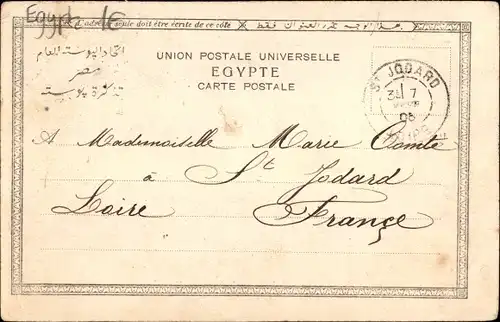 Egypt 1E
L'adresse seule doit être écrite de ce côté هذا الوجه محرر العنوان فقط
اتحاد البوستة العام
مصر
تذكرة بوستة
UNION POSTALE UNIVERSELLE
EGYPTE
CARTE POSTALE
ST JODARD
31 7
05
LOIRE
A Mademoiselle Marie Comte
à St Jodard
Loire France